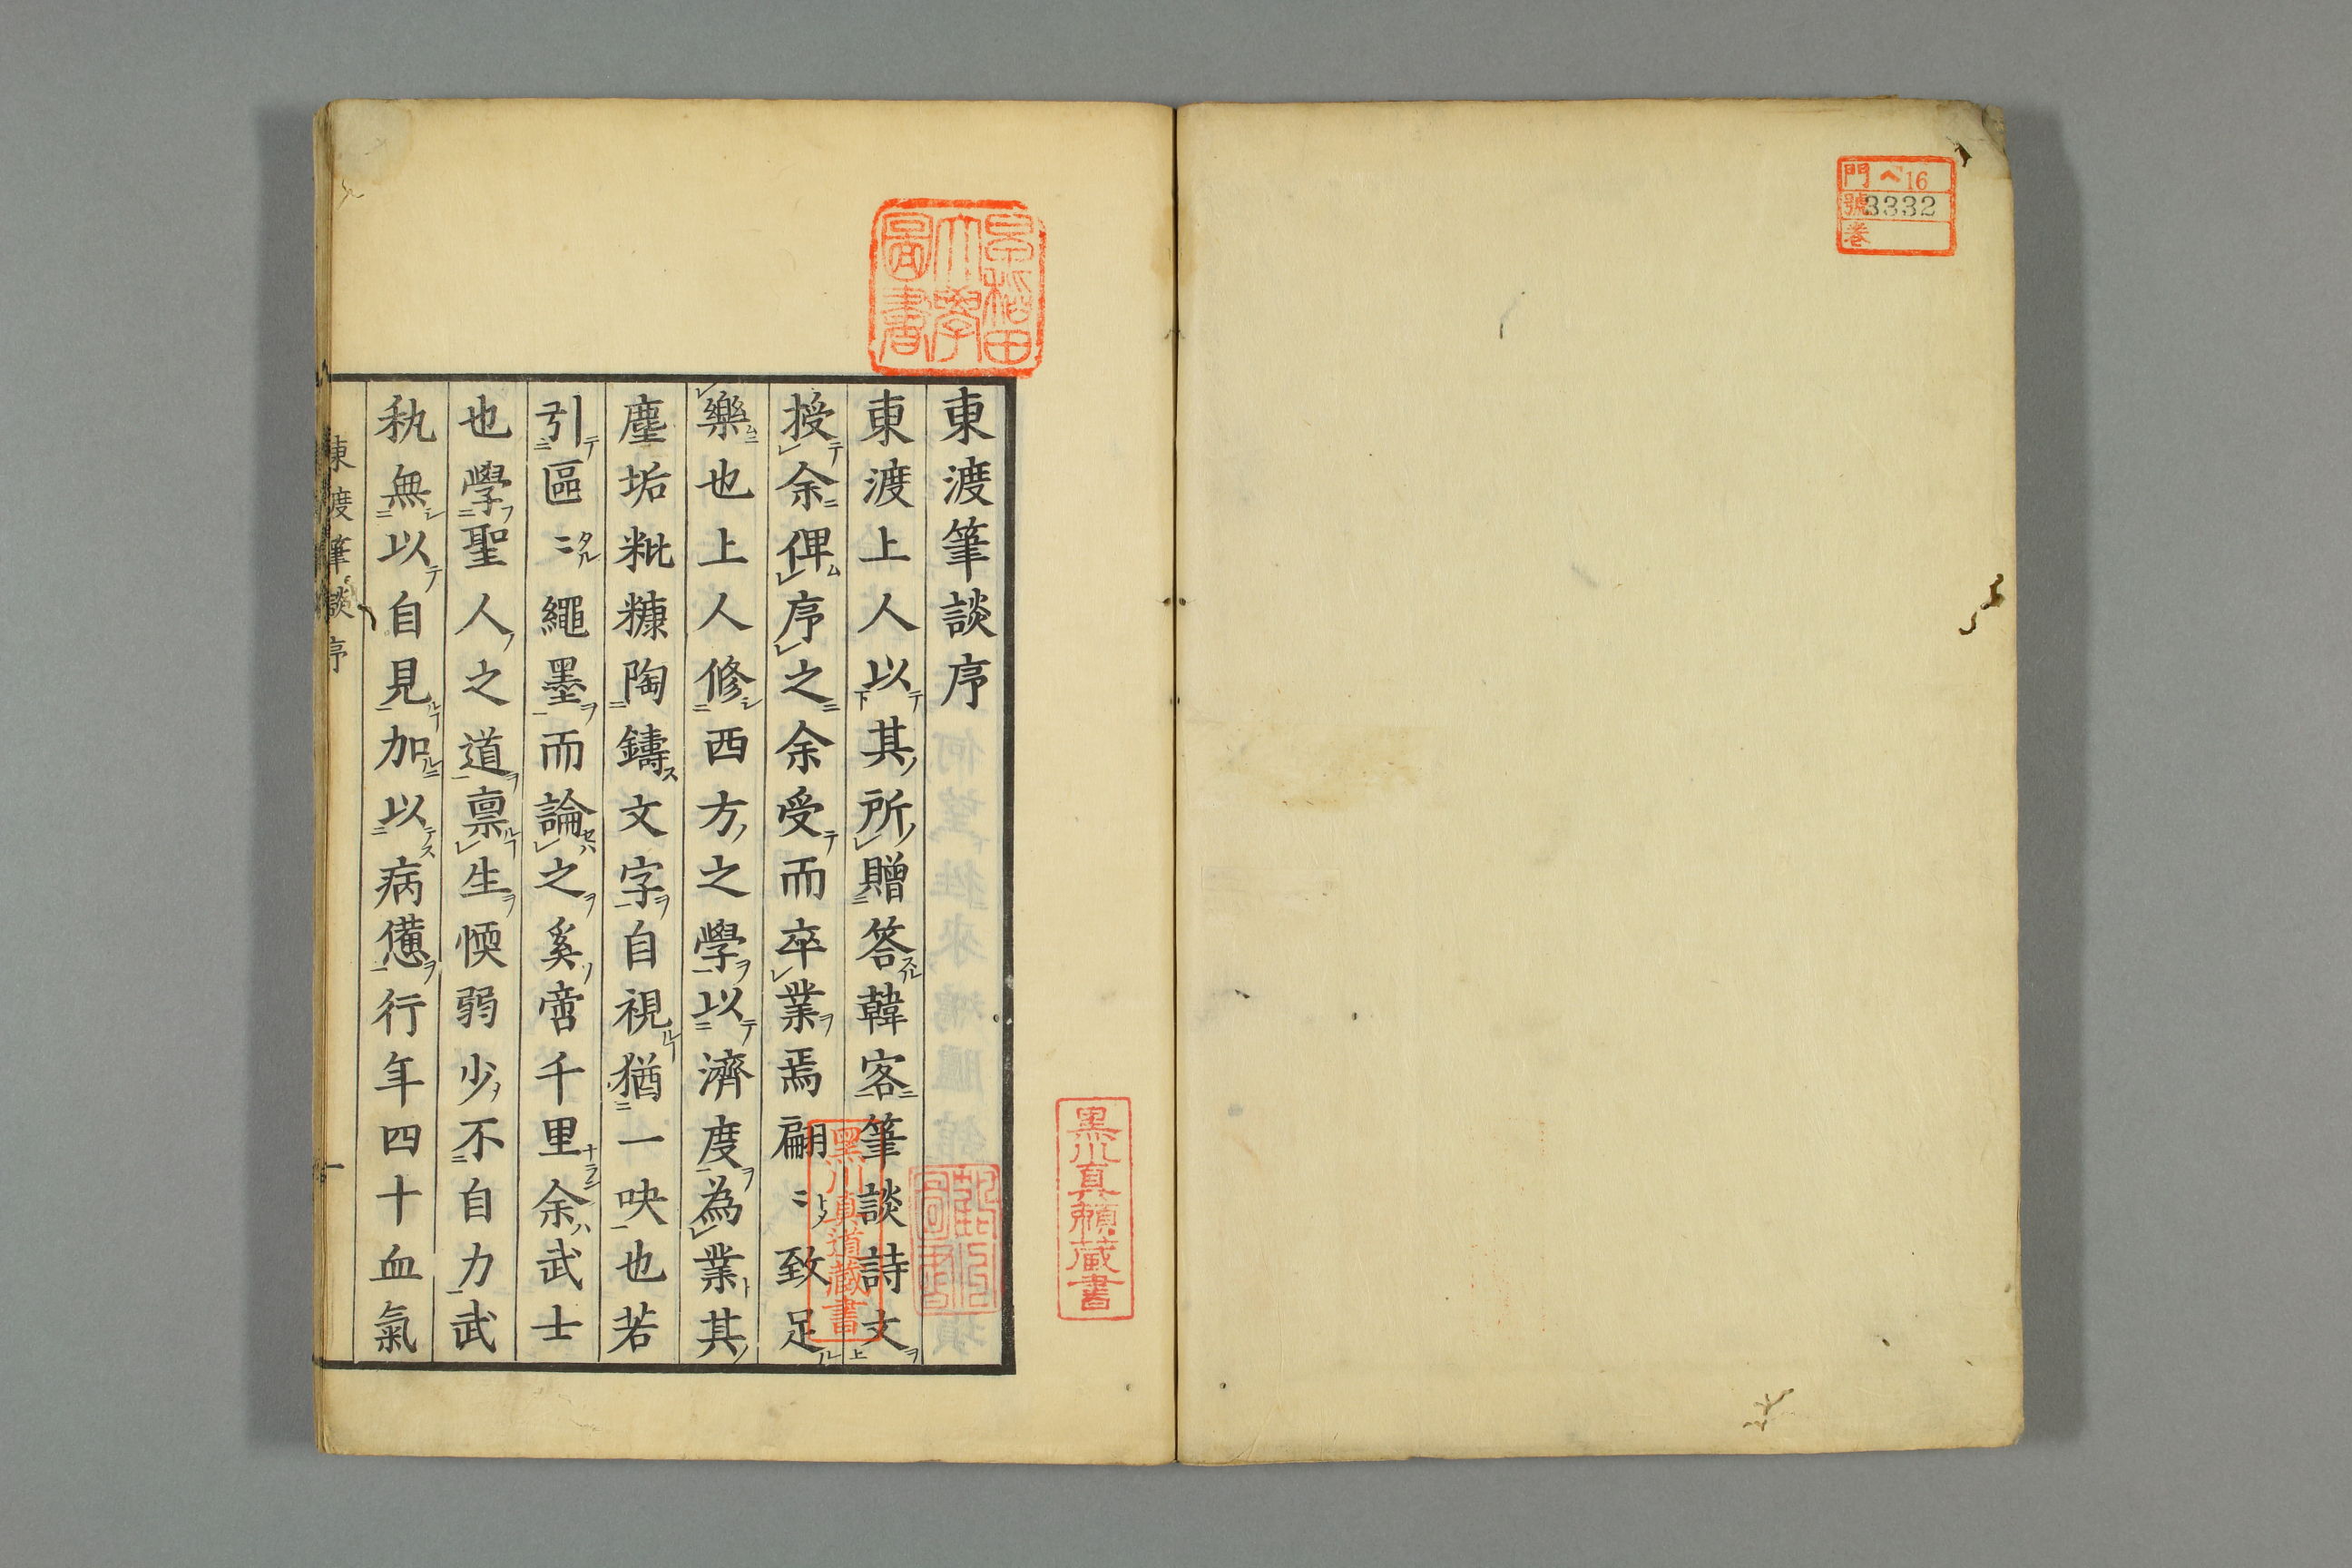 門 ヘ16
號 3332
巻
早稲田大學圖書
黒川真頼蔵書
黒川真道蔵書
東渡筆談序
東渡上人以其所贈答韓客筆談詩文
授余俾序之余受而卒業焉翩〻致足
樂也上人修西方之學以濟度為業其
塵垢粃糠陶鑄文字自視猶一吷也若
引區〻繩墨而論之奚啻千里余武士
也學聖人之道禀生愞弱少不自力武
執無以自見加以病憊行年四十血氣
東渡筆談序
一